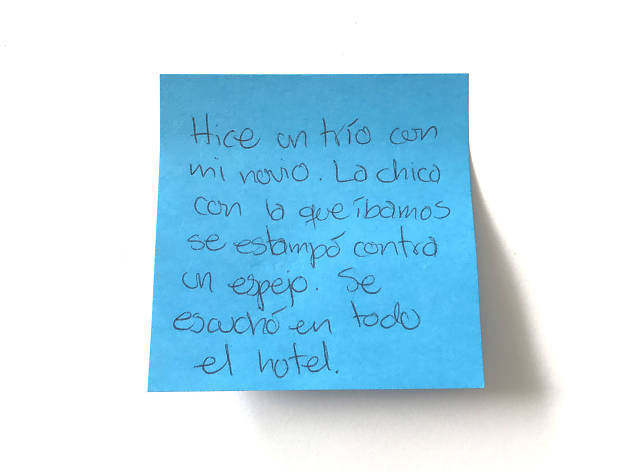 Hice un trío con
mi novio. La chica
con la que íbamos
se estampó contra
un espejo. Se
escuchó en todo
el hotel.